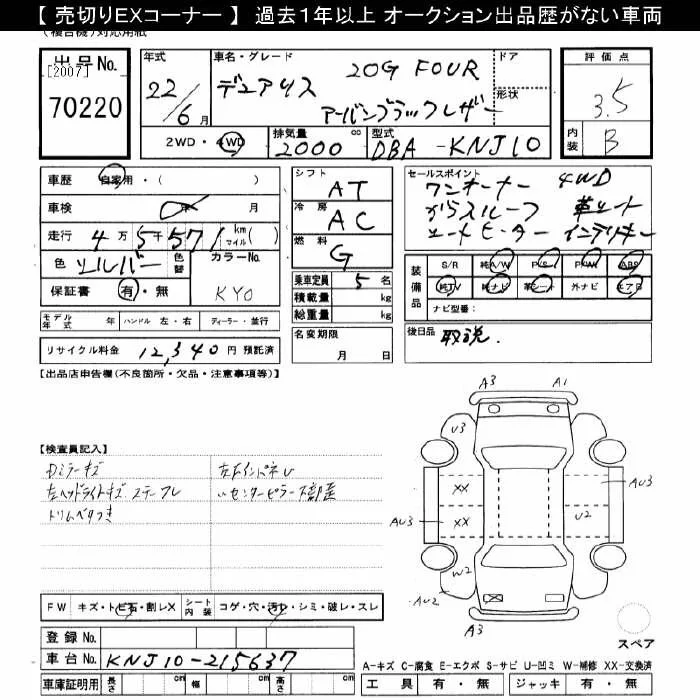 【 売切りEXコーナー 】 過去1年以上 オークション出品歴がない車両
(複合機)対応用紙
出品No.
[2007]
70220
年式
22/6月
車名・グレード
デュアリス 20G FOUR
アーバンブラックレザー
ドア
形状
2WD・4WD
排気量
2000
cc
型式
DBA-KNJ10
評価点
3.5
内装
B
車歴 自家用・( )
車検 年 月
走行 4万5千571 km マイル( )
色 シルバー 色替
カラーNo.
KY0
保証書 有・無
シフト
AT
冷房
AC
燃料
G
乗車定員 5名
積載量 kg
総重量 kg
セールスポイント
ワンオーナー 4WD
ガラスルーフ 革シート
シートヒーター インテリキー
装備品
S/R 純A/W P/S P/W ABS
純TV 純ナビ 革シート 外ナビ エアB
ナビ型番:
モデル年式 年 ハンドル 左・右 ディーラー・並行
リサイクル料金 12,340円 預託済
名変期限
月 日
後日品 取説.
【出品店申告欄(不良箇所・欠品・注意事項等)】
【検査員記入】
Dミラーキズ
左ヘッドライトキズ ステーフレ
トリムベタつき
左Fインパネレ
〃センターピラー下部歪
A3 A1
U3
XX AU3
XX U2
AU3
W2
AU2
XX
A3
スペア
FW キズ・トビ石・割レX
シート内装 コゲ・穴・汚レ・シミ・破レ・スレ
登録No.
車台No. KNJ10-215637
車庫証明用 長さ cm 幅 cm 高さ cm
A-キズ C-腐食 E-エクボ S-サビ U-凹ミ W-補修 XX-交換済
工具 有・無 ジャッキ 有・無